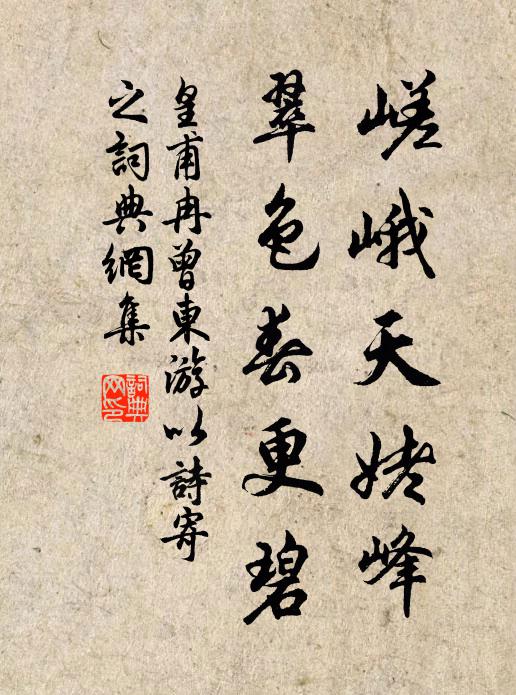 嵯峨天姥峰
翠色春更碧
皇甫冉曾東游以詩寄
之詞典網集
詞典
网印